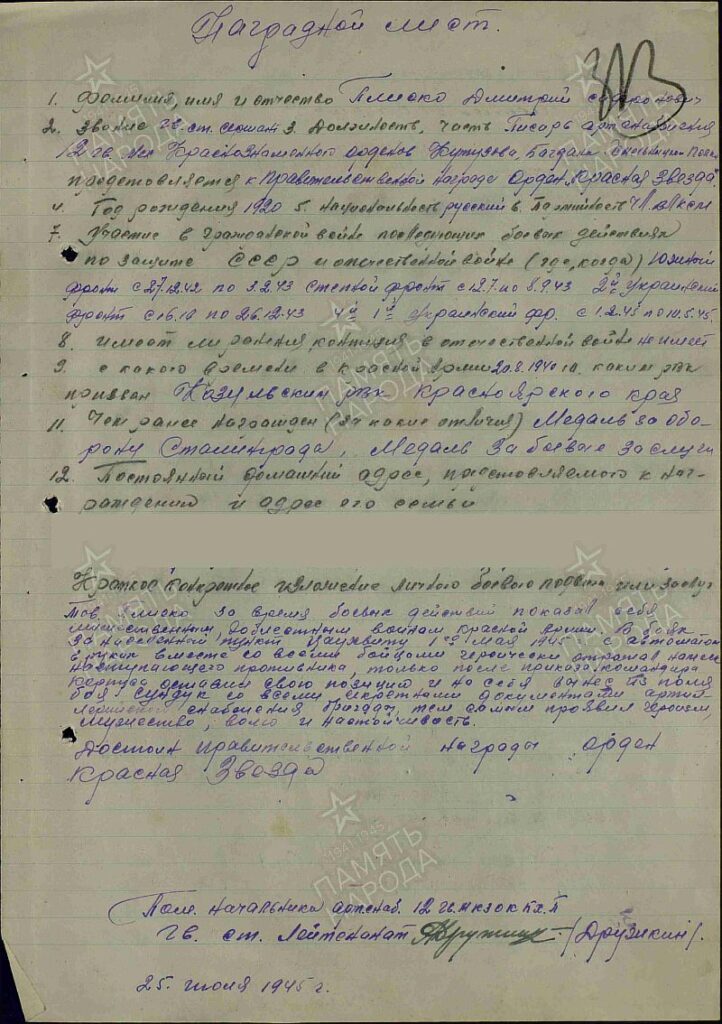 Наградной лист.
1. Фамилия, имя и отчество Плиско Дмитрий
2. Звание гв. ст. сержант 3. Должность, часть Писарь артснабжения
12 гв. Краснознаменного орденов Кутузова, Богдана
представляется к Правительственной награде Орден "Красная Звезда"
4. Год рождения 1920 5. национальность русский 6. Партийность
7. Участие в гражданской войне последующих боевых действиях
по защите СССР и отечественной войне (где, когда) Южный
фронт с 27.12.42 по 3.2.43 Степной фронт с 12.7. по 8.9.43 2й Украинский
фронт с 16.10 по 26.12.43 4й 1й Украинский фр. с 1.2.45 по 10.5.45.
8. имеет ли ранения, контузия в отечественной войне не имеет
9. с какого времени в красной армии 20.8.1940 10. каким рвк
призван рвк Красноярского края
11. Чем ранее награжден (за какие отличия) Медаль за обо-
рону Сталинграда, Медаль За боевые заслуги
12. Постоянный домашний адрес, представляемого к наг-
раждению и адрес его семьи
Краткое конкретное изложение личного боевого подвига или заслуг
Тов. Плиско за время боевых действий показал себя
мужественным воином Красной Армии. В боях
за населенный пункт мая 1945 г. с автоматом
в руках вместе со всеми бойцами героически отражал
наступающего противника, только после приказа командира
корпуса оставил свою позицию и на себе вынес из поля
боя сундук со всеми секретными документами артил-
лерийского снабжения бригады, тем самым проявил героизм,
мужество, волю и настойчивость.
Достоин правительственной награды орден
Красная Звезда
ПАМЯТЬ
НАРОДА
1941-1945
Пом. начальника артснаб. 12 гв.
гв. ст. Лейтенант /Друзякин/.
25. июля 1945 г.